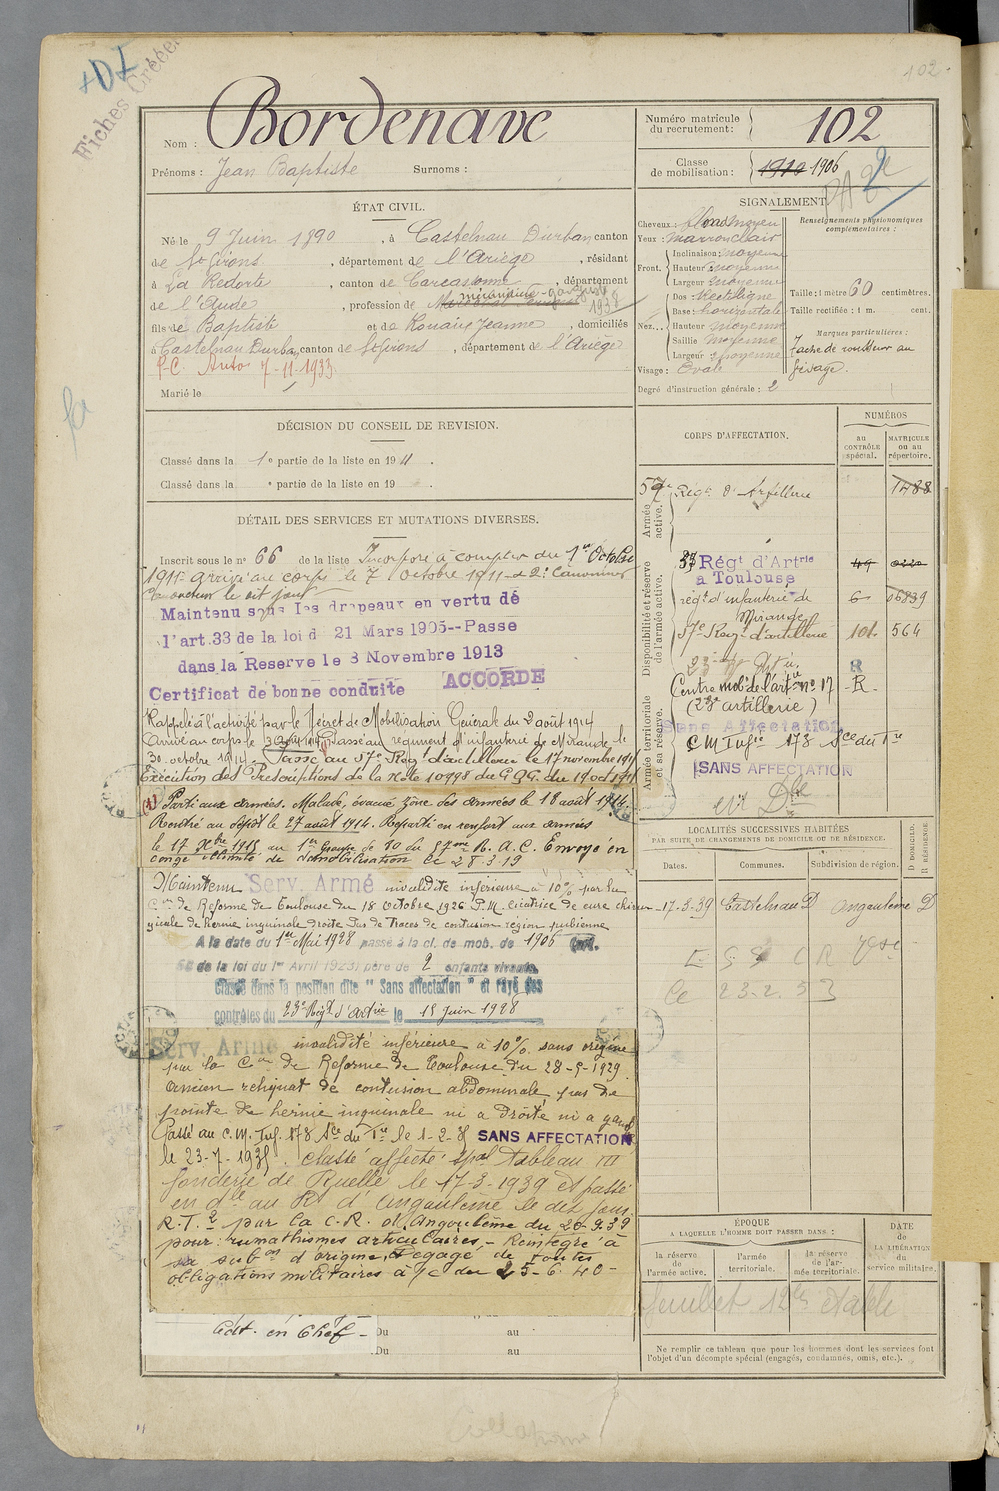 102
Fiches Créées
102
Nom : Bordenave
Prénoms : Jean Baptiste Surnoms :
Numéro matricule du recrutement : 102
Classe de mobilisation : 1910 1906
ÉTAT CIVIL.
Né le 9 Juin 1890, à Castelnau Durban canton
de St Girons, département de l'Ariège, résidant
à La Redorte, canton de Carcassonne, département
de l'Aude, profession de
1939
fils de Baptiste et de Rouaix Jeanne, domiciliés
à Castelnau Durban, canton de St Girons, département de l'Ariège
P.C. Auto 7-11-1933.
Marié le
SIGNALEMENT.
Cheveux : moyen
Yeux : marron clair
Front. Inclinaison : moyenne
Hauteur : moyenne
Largeur : moyenne
Nez. Dos : Rectiligne
Base : horizontale
Hauteur : moyenne
Saillie : moyenne
Largeur : moyenne
Visage : Ovale
Degré d'instruction générale : 2
Renseignements physionomiques complémentaires :
Taille : 1 mètre 60 centimètres.
Taille rectifiée : 1 m. cent.
Marques particulières :
Tache de rousseur au
visage.
DÉCISION DU CONSEIL DE REVISION.
Classé dans la 1e partie de la liste en 1911.
Classé dans la e partie de la liste en 19 .
DÉTAIL DES SERVICES ET MUTATIONS DIVERSES.
Inscrit sous le no 66 de la liste Incorporé à compter du 1er Octobre
1911 arrivé au corps le 7 Octobre 1911 et 2e Canonnier
le dit jour
Maintenu sous les drapeaux en vertu de
l'art.33 de la loi d 21 Mars 1905--Passe
dans la Reserve le 8 Novembre 1913
Certificat de bonne conduite ACCORDE
Rappelé à l'activité par le Décret de Mobilisation Générale du 2 août 1914
Arrivé au corps le 3 août 1914 Passé au régiment d'infanterie de Mirande le
30 octobre 1914. Passé au 57e Rég. d'artillerie le 17 novembre 1914
Exécution des Prescriptions de la Note 10998 du G.Q.G. du 19 oct 1914
(1) Parti aux armées. Malade, évacué zône des armées le 18 août 1914.
Rentré au dépôt le 27 août 1914. Reparti en renfort aux armées
le 17 Xbre 1915 au 1er Groupe de 90 du 57me R.A.C. Envoyé en
congé illimité de démobilisation le 28-3-19
Maintenu Serv. Armé invalidité inférieure à 10% par la
Con de Réforme de Toulouse du 18 octobre 1926 P.M. cicatrice de cure chirur-
gicale de hernie inguinale droite Pas de Traces de contusion région pubienne
A la date du 1er Mai 1928 passé à la cl. de mob. de 1906
de la loi du 1er Avril 1923) père de 2 enfants vivants.
Classé dans la position dite "Sans affectation" et rayé des
contrôles du 23e Régt d'Artrie le 15 Juin 1928
Serv. Armé invalidité inférieure à 10% sans origine
par la Con de Réforme de Toulouse du 28-5-1929.
Ancien reliquat de contusion abdominale pas de
pointe de hernie inguinale ni a droite ni a gauche
Passé au C.M. Inf. 178 Sce du Tre le 1-2-35 SANS AFFECTATION
le 23-7-1935. Classé affecté spal tableau III
fonderie de Ruelle le 17-3-1939 et passé
en dle au Rt d'Angoulême le dit jour
R.T. 2 par la C.R. d'Angoulême du 20-9-39
pour : rumathismes articulaires. - Réintégré à
sa subon d'origine. Dégagé de toutes
obligations militaires à pc du 25-6-40-
Adt. en Chef -
Du au
Du au
CORPS D'AFFECTATION.
NUMÉROS
au contrôle spécial.
matricule ou au répertoire.
Armée active.
57e Régt d'Artillerie 1488
Disponibilité et réserve de l'armée active.
57 Régt d'Artrie
a Toulouse 49
régt d'infanterie de
Mirande 6 06839
57e Régt d'artillerie 101 564
23 8
Armée territoriale et sa réserve.
Centre mob. de l'artie no 17 - R -
(23e artillerie)
Sans Affectation
C M Infie 178 Sce du Tre
SANS AFFECTATION
LOCALITÉS SUCCESSIVES HABITÉES
PAR SUITE DE CHANGEMENTS DE DOMICILE OU DE RÉSIDENCE.
D DOMICILE.
R RÉSIDENCE.
Dates. Communes. Subdivision de région.
17-3-39 Castelnau D Angoulême D
Le 23.2.53
ÉPOQUE
A LAQUELLE L'HOMME DOIT PASSER DANS :
la réserve de l'armée active.
l'armée territoriale.
la réserve de l'armée territoriale.
DATE de LA LIBÉRATION du service militaire.
Ne remplir ce tableau que pour les hommes dont les services font
l'objet d'un décompte spécial (engagés, condamnés, omis, etc.).